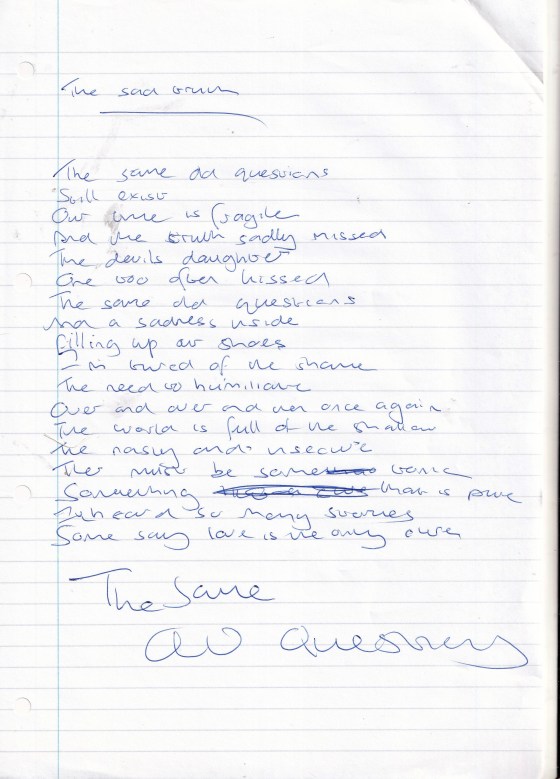 The sad truth
The same old questions
Still exist
Our time is fragile
And the truth sadly missed
The devils daughter
One too often kissed
The same old questions
And a sadness inside
Filling up our shoes
I'm tired of the shame
The need to humiliate
Over and over and over once again
The world is full of the shallow
The nasty and insecure
Ther must be some tonic
Something that is pure
I've heard so many stories
Some say love is the only cure
The Same
Old Questions